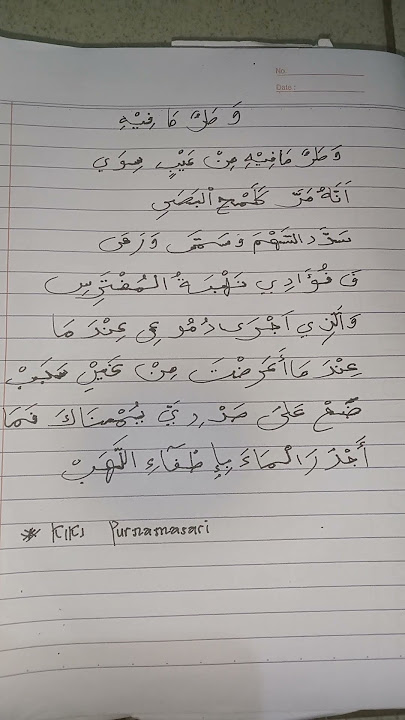 No.
Date :
وَطَرٌ مَا فِيْهِ
وَطَرٌ مَا فِيْهِ مِنْ عَيْبٍ سِوَي
اَنَّهُ مَرَّ كَلَمْحِ الْبَصَرِ
سَدَّدَ السَّهْمَ وَسَمَّى وَرَمَى
فَ فُؤَادِي نَهْبَةُ الْمُفْتَرِسِ
وَالَّذِي اَجْرَى دُمُوعِي عِنْدَ مَا
عِنْدَ مَا أَعْرَضْتَ مِنْ غَيْرِ سَبَبْ
ضَعْ عَلَى صَدْرِيْ يُمْنَاكَ فَمَا
أَجْدَرَ الْمَاءَ بِإِطْفَاءِ اللَّهَبْ
* KIKI Purnamasari